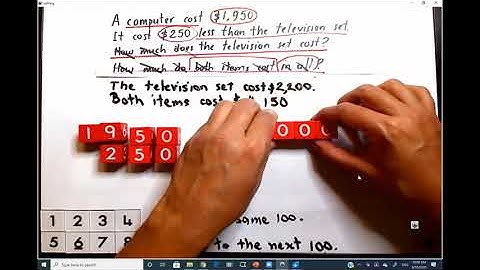 A computer cost $1,950
It cost $250 less than the television set.
How much does the television set cost?
How much do both items cost in all?
The television set cost $2,200.
Both items cost $4,150
1 9 5 0
0 0 0
2 5 0
1 2 3 4
5 6 7 8
same 100.
to the next 100.